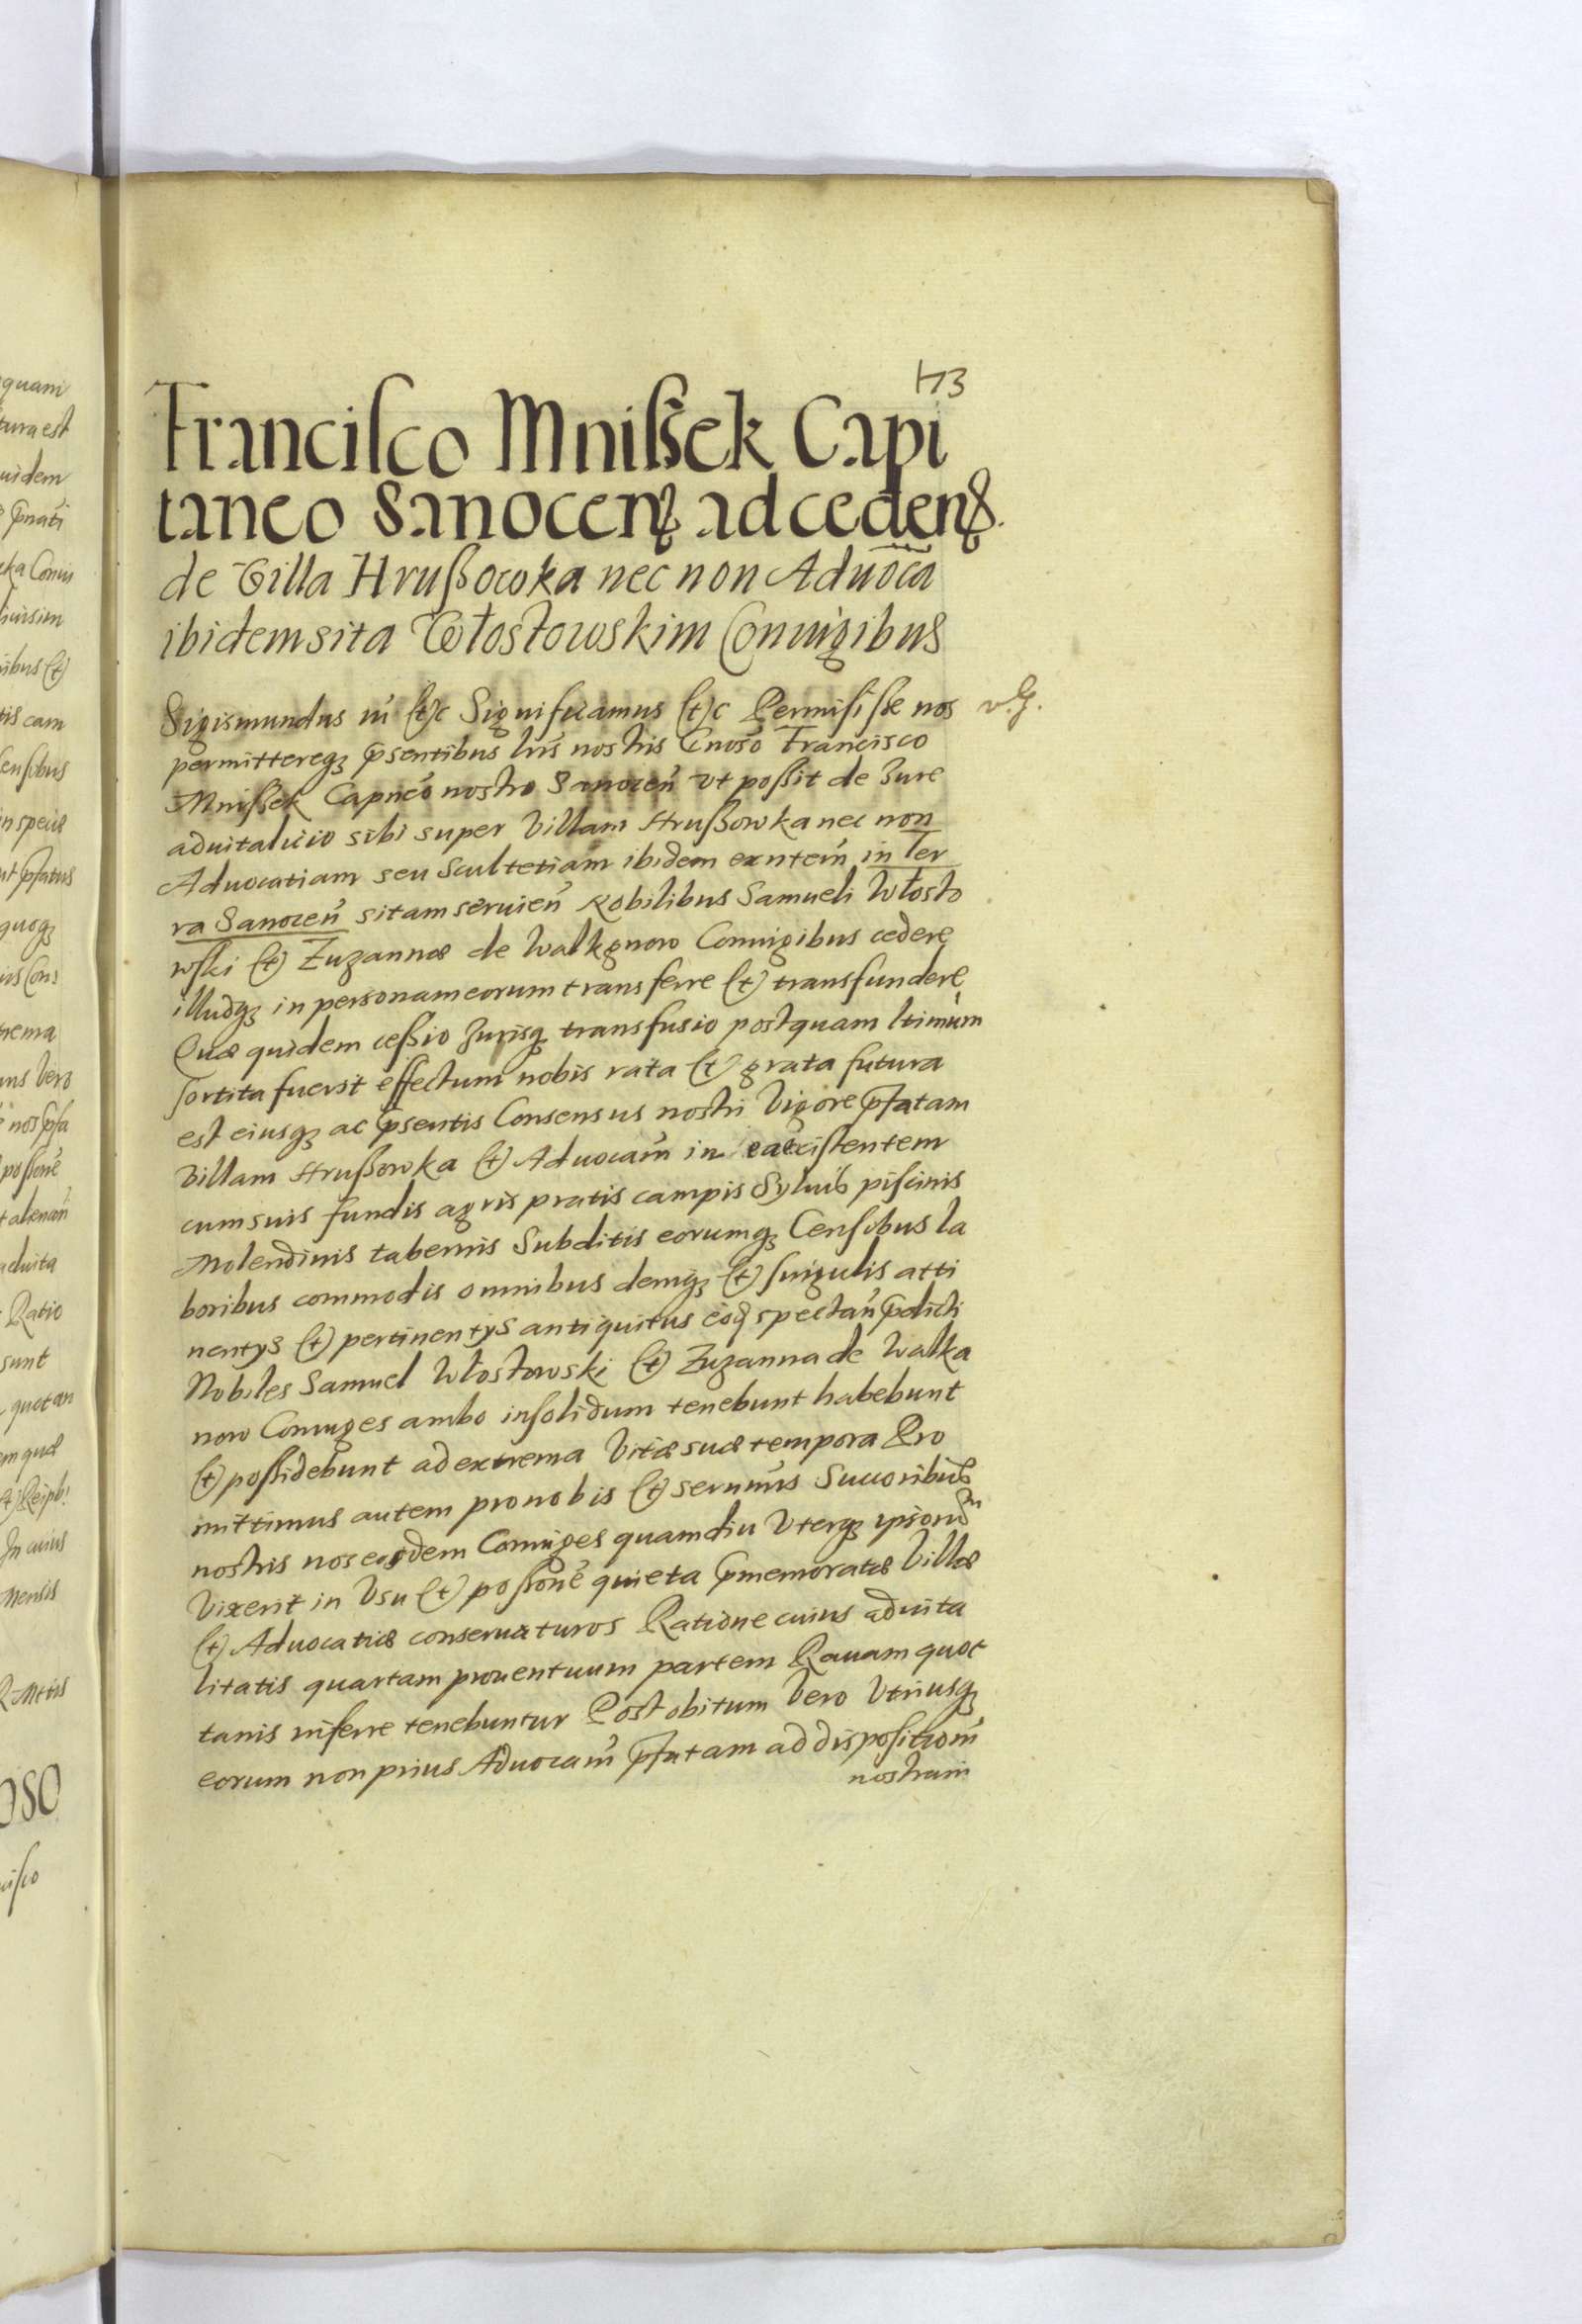 173
Francisco Mnißek Capi
taneo Sanocens ad cedens.
de Villa Hrußowka nec non Aduocã
ibidem sita Włostowskim Coniugibus
Sigismundus iii (et)c Significamus (et)c Permisisse nos
permittereq; pṡentibus lrīs nostris Gnoso Francisco
Mnißek Capneo nostro Sanocen̄ vt possit de Iure
aduitalicio sibi super Villam Hrußowka nec non
Aduocatiam seu Scultetiam ibidem exntem̄ in Ter
ra Sanocen̄ sitam seruien̄ Nobilibus Samueli Włosto
wski (et) Zuzannæ de Walkgnow Coniugibus cedere
illudq; in personam eorum transferre (et) transfundere
Quæ quidem cessio Iurisq; transfusio postquam ltimum
sortita fuerit effectum nobis rata (et) grata futura
est eiusq; ac pṡentis Consensus nostri Vigore pfatam
Villam Hrußowka (et) Aduocam̄ in ea existentem
cum suis fundis agris pratis campis Syluis piscinis
Molendinis tabernis Subditis eorumq; Censibus la
boribus commodis omnibus deniq; (et) singulis atti
nentys (et) pertinentys antiquitus eoq; spectan̄ pdicti
Nobiles Samuel Włostowski (et) Zuzanna de Walka
now Coniuges ambo insolidum tenebunt habebunt
(et) possidebunt ad extrema Vitæ suæ tempora Pro
mittimus autem pro nobis (et) sernmis Succoribus
nostris nos eosdem Coniuges quamdiu Vterq; ipsorum
Vixerit in Vsu (et) possone quieta pmemoratæ Villæ
(et) Aduocatiæ conseruaturos Ratione cuius aduita
litatis quartam prouentuum partem Rauam quot
tanis inferre tenebuntur Post obitum Vero Vtriusq;
eorum non prius Aduocam̄ pfatam ad dispositiom̄
nostram